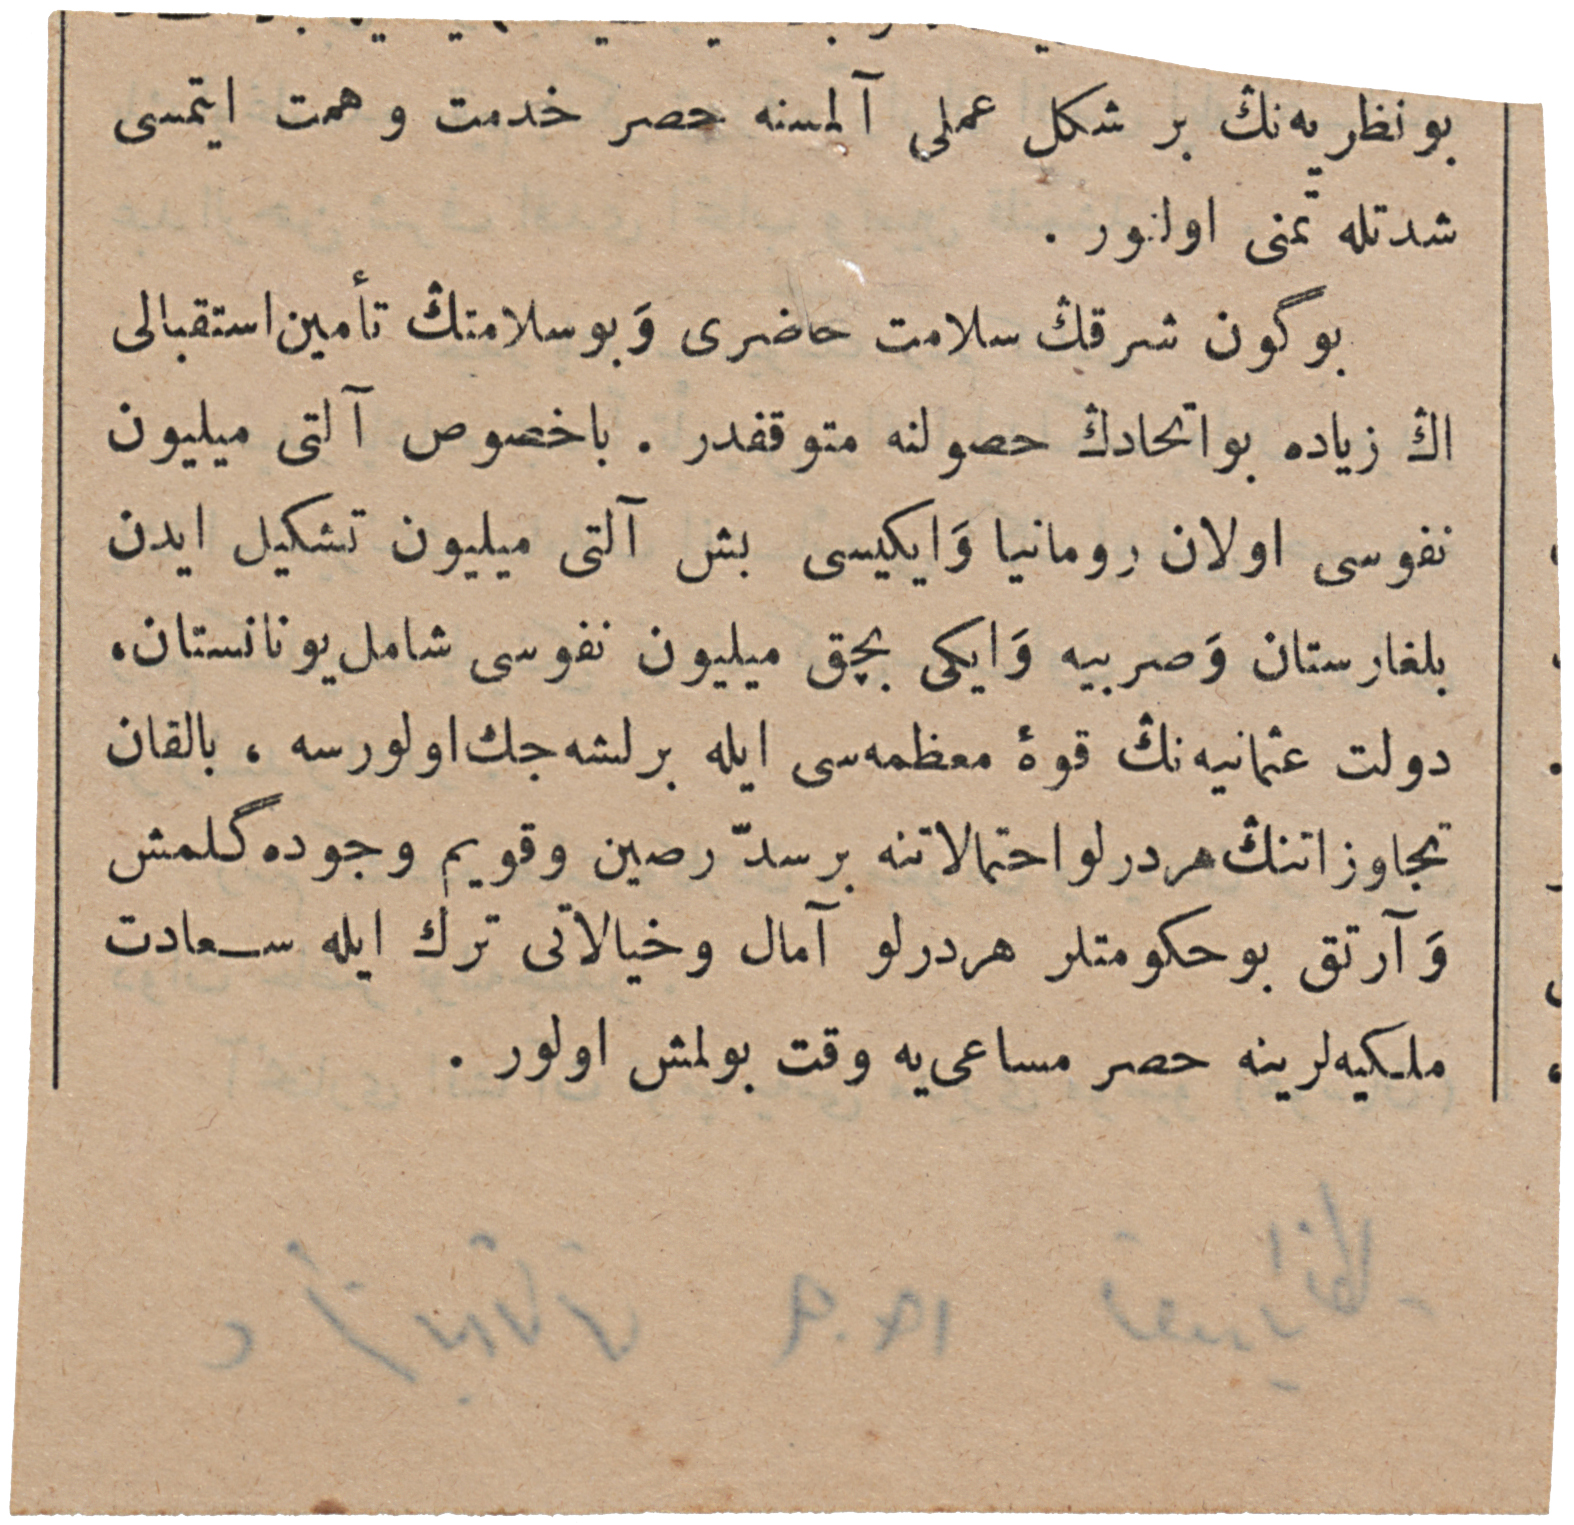 بو نظریه‌نڭ بر شکل عملی آلمسنه حصر خدمت و همت ایتمسی
شدتله تمّنی اولنور .
بو گون شرقڭ سلامت حاضری وَ بو سلامتڭ تأمین استقبالی
اڭ زیاده بو اتحادڭ حصولنه متوقفدر . باخصوص آلتی میلیون
نفوسی اولان رومانیا وَ ایکیسی بش آلتی میلیون تشکیل ایدن
بلغارستان وَ صربیه وَ ایکی بچق میلیون نفوسی شامل یونانستان،
دولت عثمانیه‌نڭ قوۀ معظمه‌سی ایله برلشه‌جك اولورسه ، بالقان
تجاوزاتنڭ هردرلو احتمالاتنه بر سدّ رصین وقویم وجوده گلمش
وَ آرتق بو حکومتلر هردرلو آمال وخیالاتی ترك ایله سـعادت
ملکیه‌لرینه حصر مساعی‌یه وقت بولمش اولور .
١٩٠٩